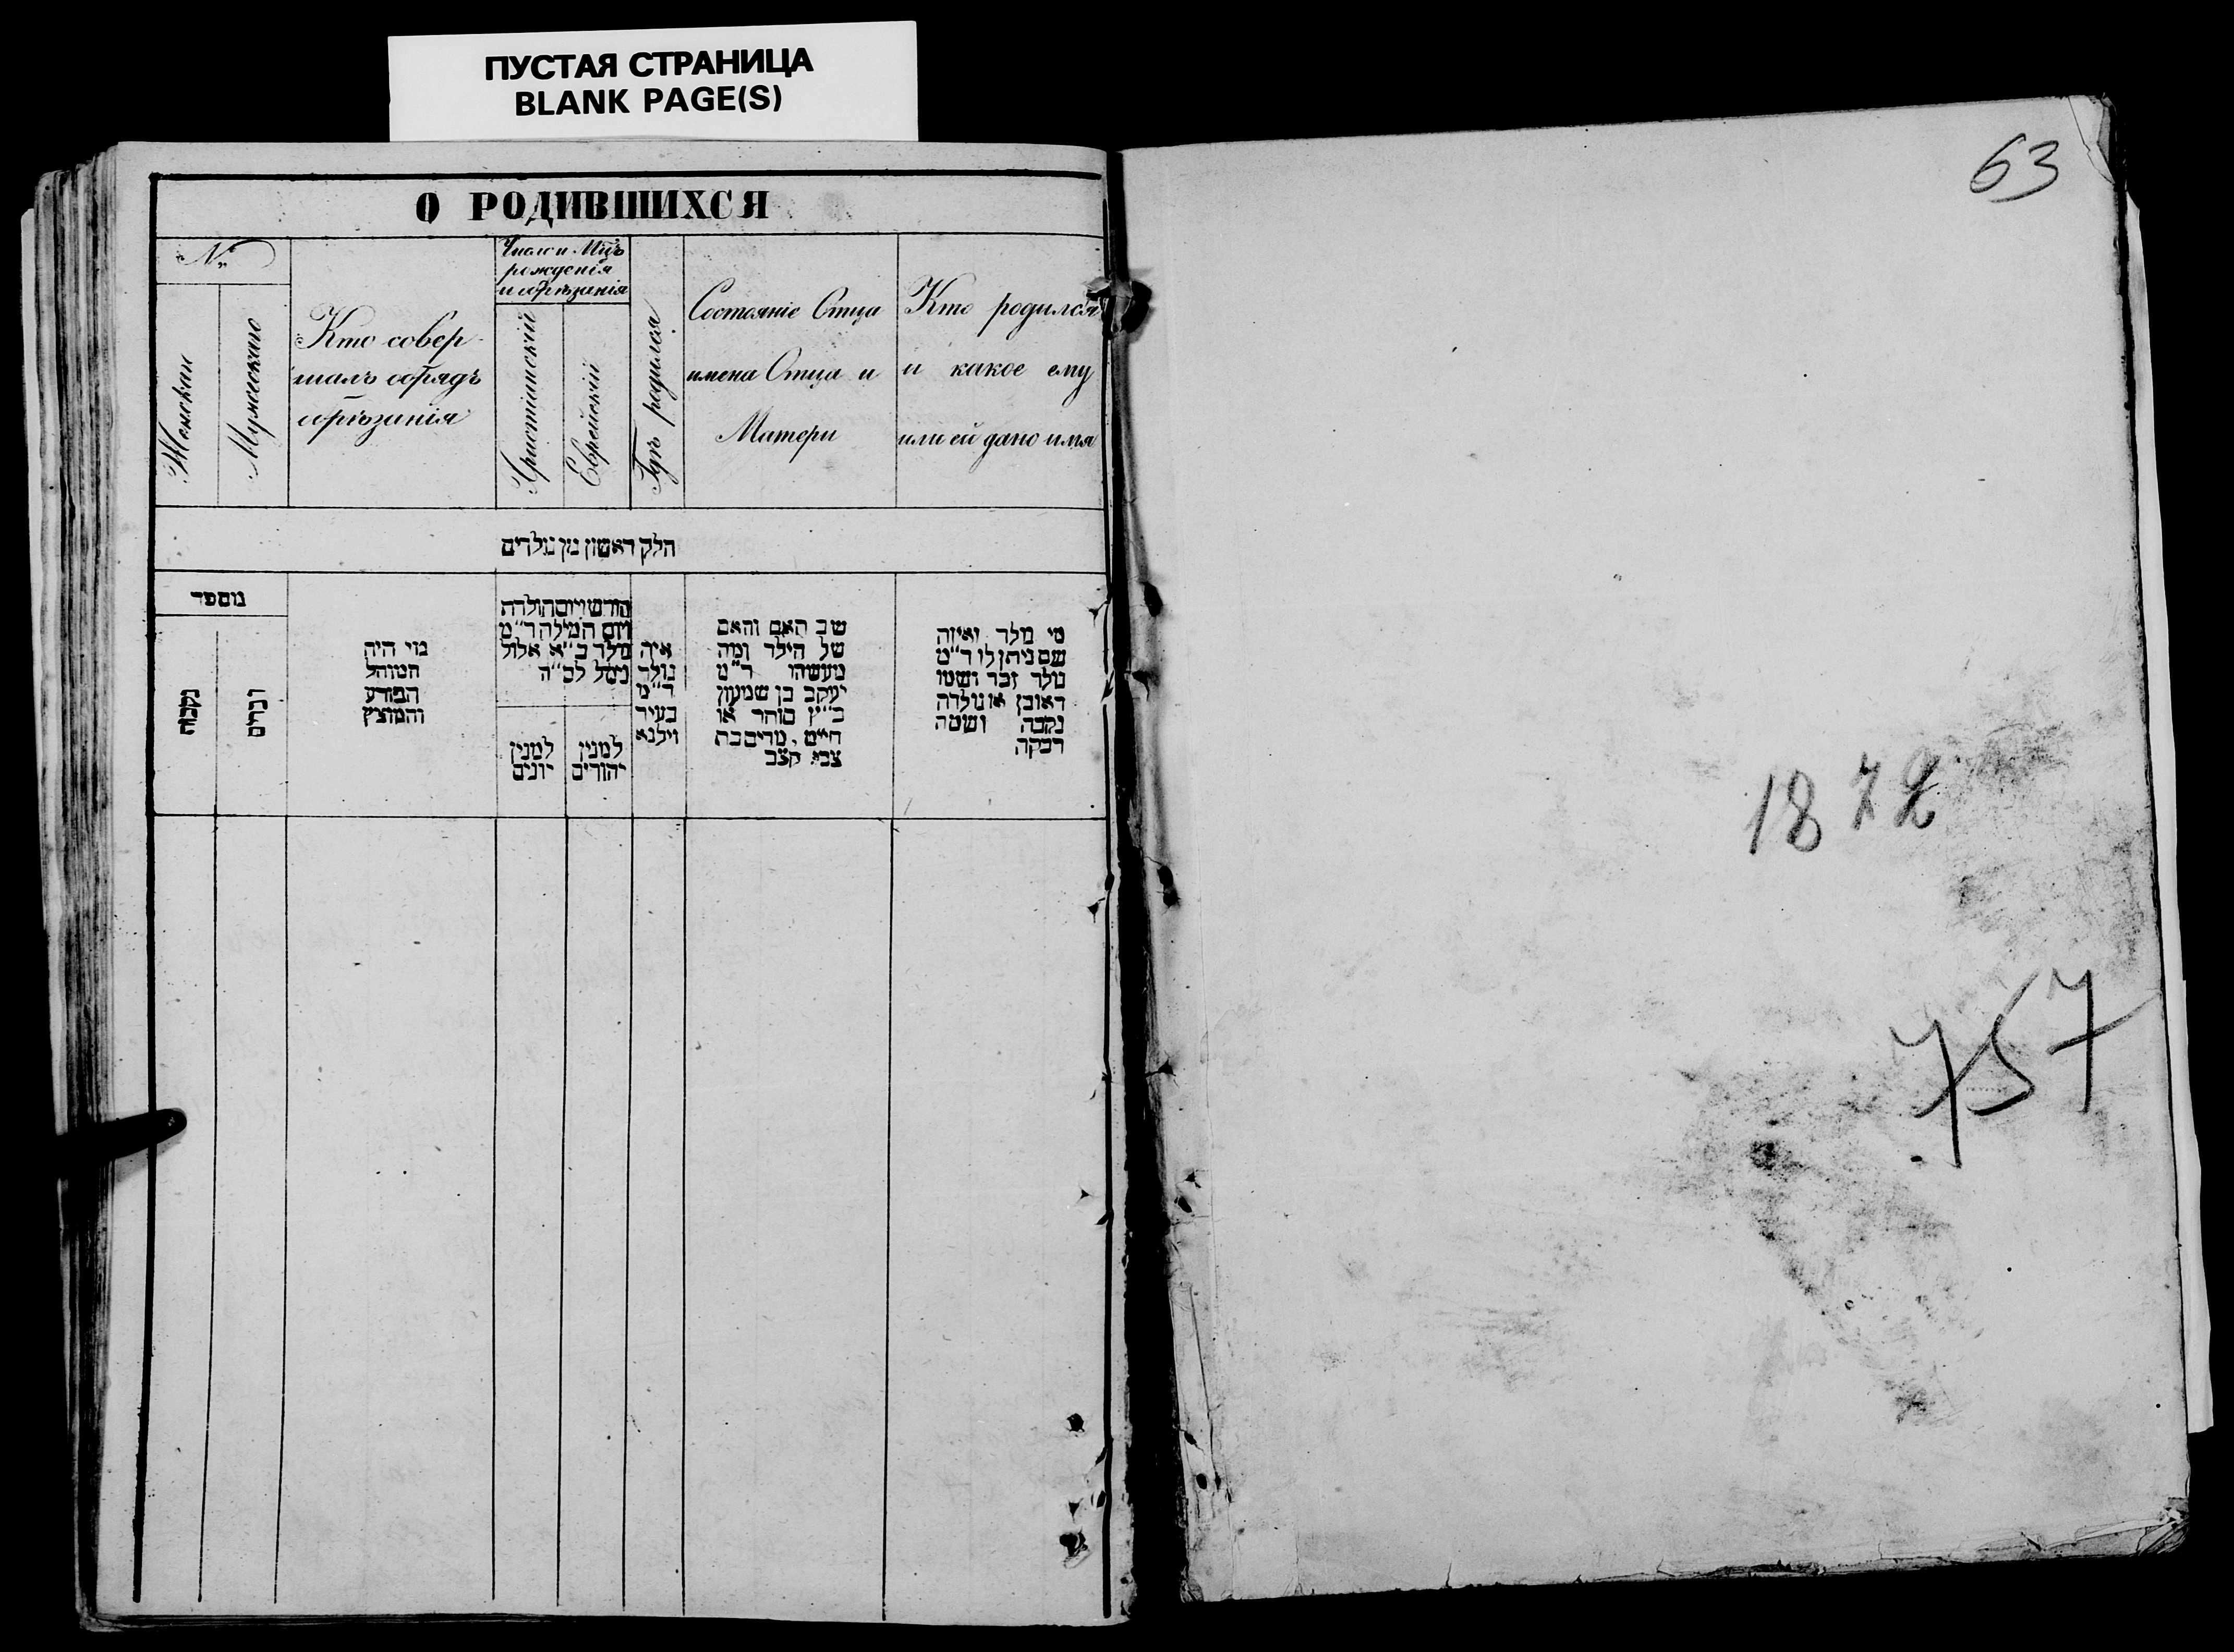 ПУСТАЯ СТРАНИЦА
BLANK PAGE(S)
О РОДИВШИХСЯ
№
Женскаи
Мужескаго
Кто совер-
шалъ обрядъ
обрѣзанія
Число и Мцъ
рожденія
и обрѣзанія
Христіанскій
Еврейскій
Гдѣ родился
Состояніе Отца
имена Отца и
Матери
Кто родился
и какое ему
или ей дано имя
חלק ראשון מן נולדים
מספר
נקבות
זכרים
מי היה
המוהל
הפורע
והמוצץ
חודש ויום הולדת
ויום המילה ד״מ
נולד כ״א אלול
נימל לס״ה
למנין
יונים
למנין
יהודים
איה
נולד
ד״מ
בעיר
ווילנא
שב האם והאם
של הילד ומה
מעשהו ד״מ
יעקב בן שמעון
כ״ץ סוחר או
חייט, מרים בת
צבי קצב
מי נולד ואיזה
שם ניתן לו ד״מ
נולד זכר ושמו
ראובן או נולדה
נקבה ושמה
רבקה
63
1872
757